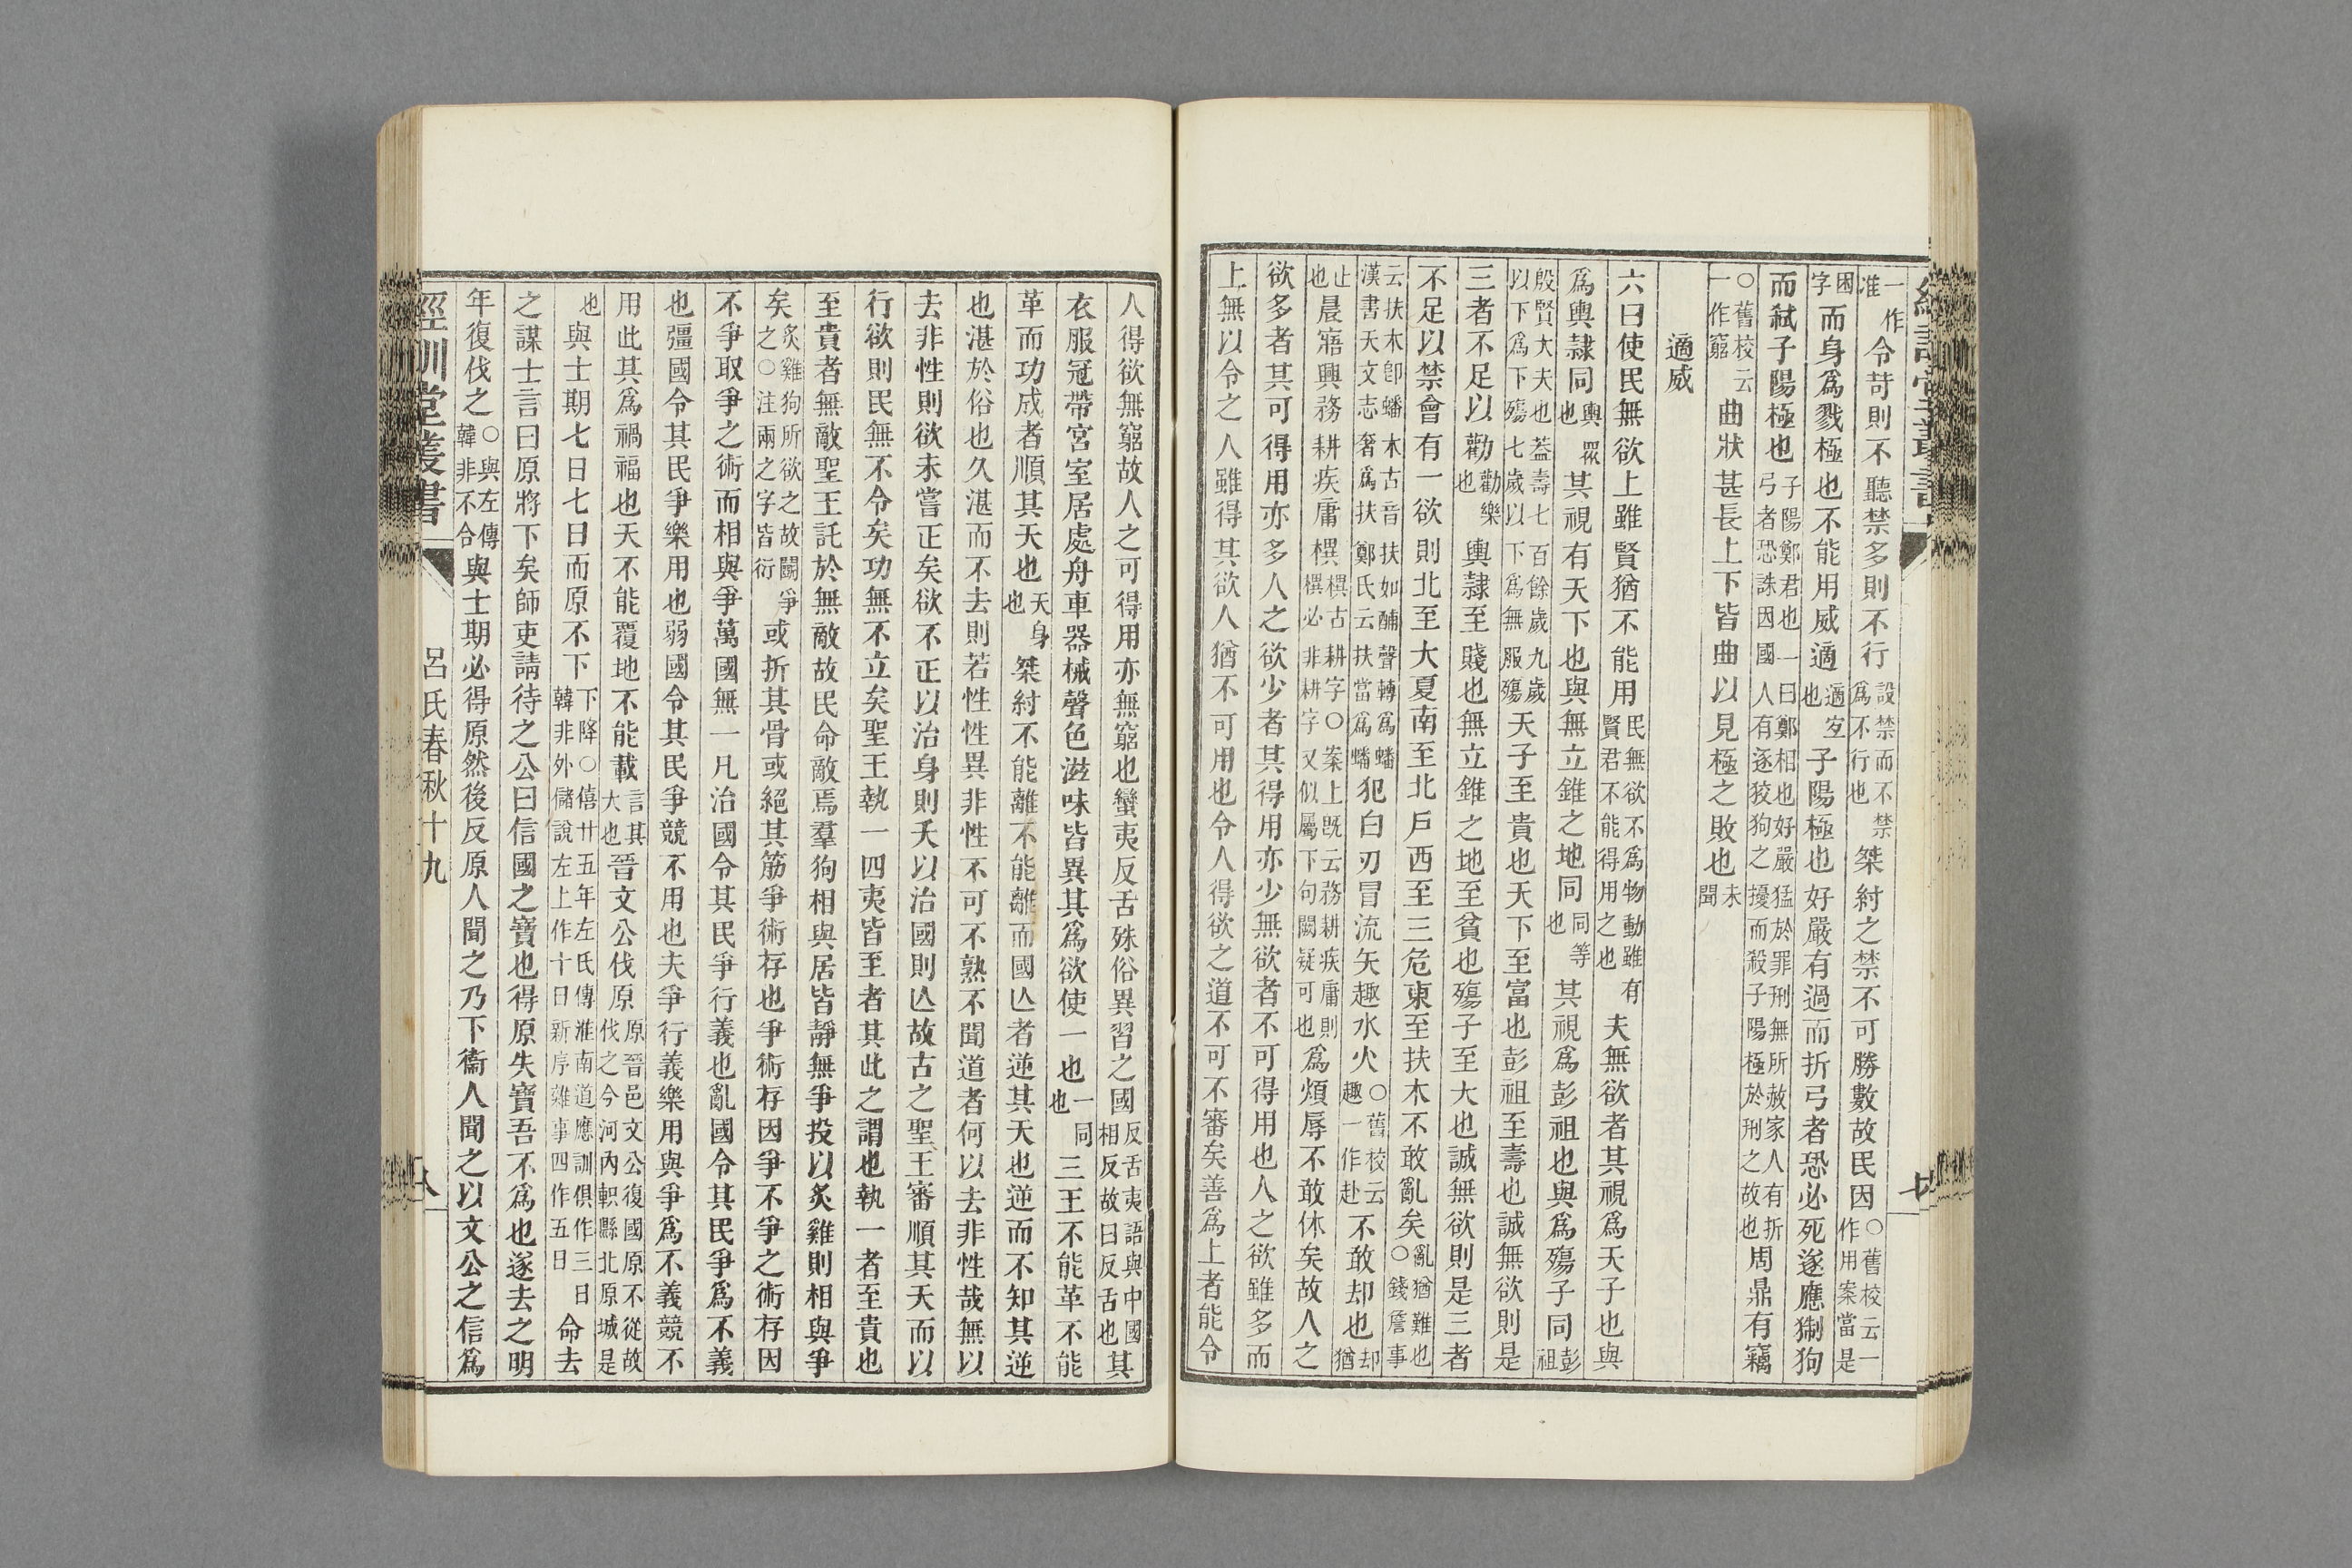 一作准令苛則不聽禁多則不行設禁而不禁爲不行也桀紂之禁不可勝數故民因○舊校云一作用案當是
困字而身爲戮極也不能用威適適宐也子陽極也好嚴有過而折弓者恐必死遂應猘狗
而弑子陽極也子陽鄭君也一曰鄭相也好嚴猛於罪刑無所赦家人有折弓者恐誅因國人有逐狡狗之擾而殺子陽極於刑之故也周鼎有竊
○舊校云一作窮曲狀甚長上下皆曲以見極之敗也未聞
適威
六曰使民無欲上雖賢猶不能用民無欲不爲物動雖有賢君不能得用之也夫無欲者其視爲天子也與
爲輿隸同輿衆也其視有天下也與無立錐之地同同等也其視爲彭祖也與爲殤子同彭祖
殷賢大夫也葢壽七百餘歲九歲以下爲下殤七歲以下爲無服殤天子至貴也天下至富也彭祖至壽也誠無欲則是
三者不足以勸勸樂也輿隸至賤也無立錐之地至貧也殤子至大也誠無欲則是三者
不足以禁會有一欲則北至大夏南至北戶西至三危東至扶木不敢亂矣亂猶難也○錢詹事
云扶木卽蟠木古音扶如酺聲轉爲蟠漢書天文志奢爲扶鄭氏云扶當爲蟠犯白刃冒流矢趣水火○舊校云趣一作赴不敢却也却猶
止也晨寤興務耕疾庸㯥㯥古耕字○案上旣云務耕疾庸則㯥必非耕字又似屬下句闕疑可也爲煩辱不敢休矣故人之
欲多者其可得用亦多人之欲少者其得用亦少無欲者不可得用也人之欲雖多而
上無以令之人雖得其欲人猶不可用也令人得欲之道不可不審矣善爲上者能令
人得欲無窮故人之可得用亦無窮也蠻夷反舌殊俗異習之國反舌夷語與中國相反故曰反舌也其
衣服冠帶宮室居處舟車器械聲色滋味皆異其爲欲使一也一同也三王不能革不能
革而功成者順其天也天身也桀紂不能離不能離而國亾者逆其天也逆而不知其逆
也湛於俗也久湛而不去則若性性異非性不可不熟不聞道者何以去非性哉無以
去非性則欲未嘗正矣欲不正以治身則夭以治國則亾故古之聖王審順其天而以
行欲則民無不令矣功無不立矣聖王執一四夷皆至者其此之謂也執一者至貴也
至貴者無敵聖王託於無敵故民命敵焉羣狗相與居皆靜無爭投以炙雞則相與爭
矣炙雞狗所欲之故鬭爭之○注兩之字皆衍或折其骨或絕其筋爭術存也爭術存因爭不爭之術存因
不爭取爭之術而相與爭萬國無一凡治國令其民爭行義也亂國令其民爭爲不義
也彊國令其民爭樂用也弱國令其民爭競不用也夫爭行義樂用與爭爲不義競不
用此其爲禍福也天不能覆地不能載言其大也晉文公伐原原晉邑文公復國原不從故伐之今河內軹縣北原城是
也與士期七日七日而原不下下降○僖廿五年左氏傳淮南道應訓俱作三日韓非外儲說左上作十日新序雜事四作五日命去
之謀士言曰原將下矣師吏請待之公曰信國之寶也得原失寶吾不爲也遂去之明
年復伐之○與左傳韓非不合與士期必得原然後反原人聞之乃下衞人聞之以文公之信爲
經訓堂叢書 呂氏春秋十九 八